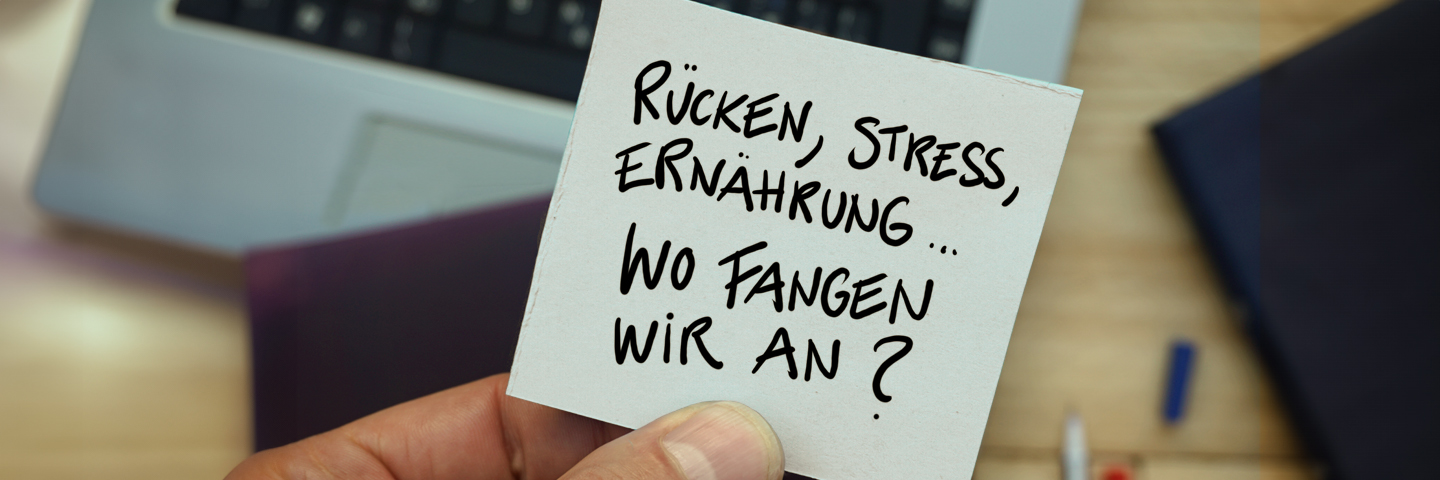 RÜCKEN, STRESS,
ERNÄHRUNG...
WO FANGEN
WIR AN?